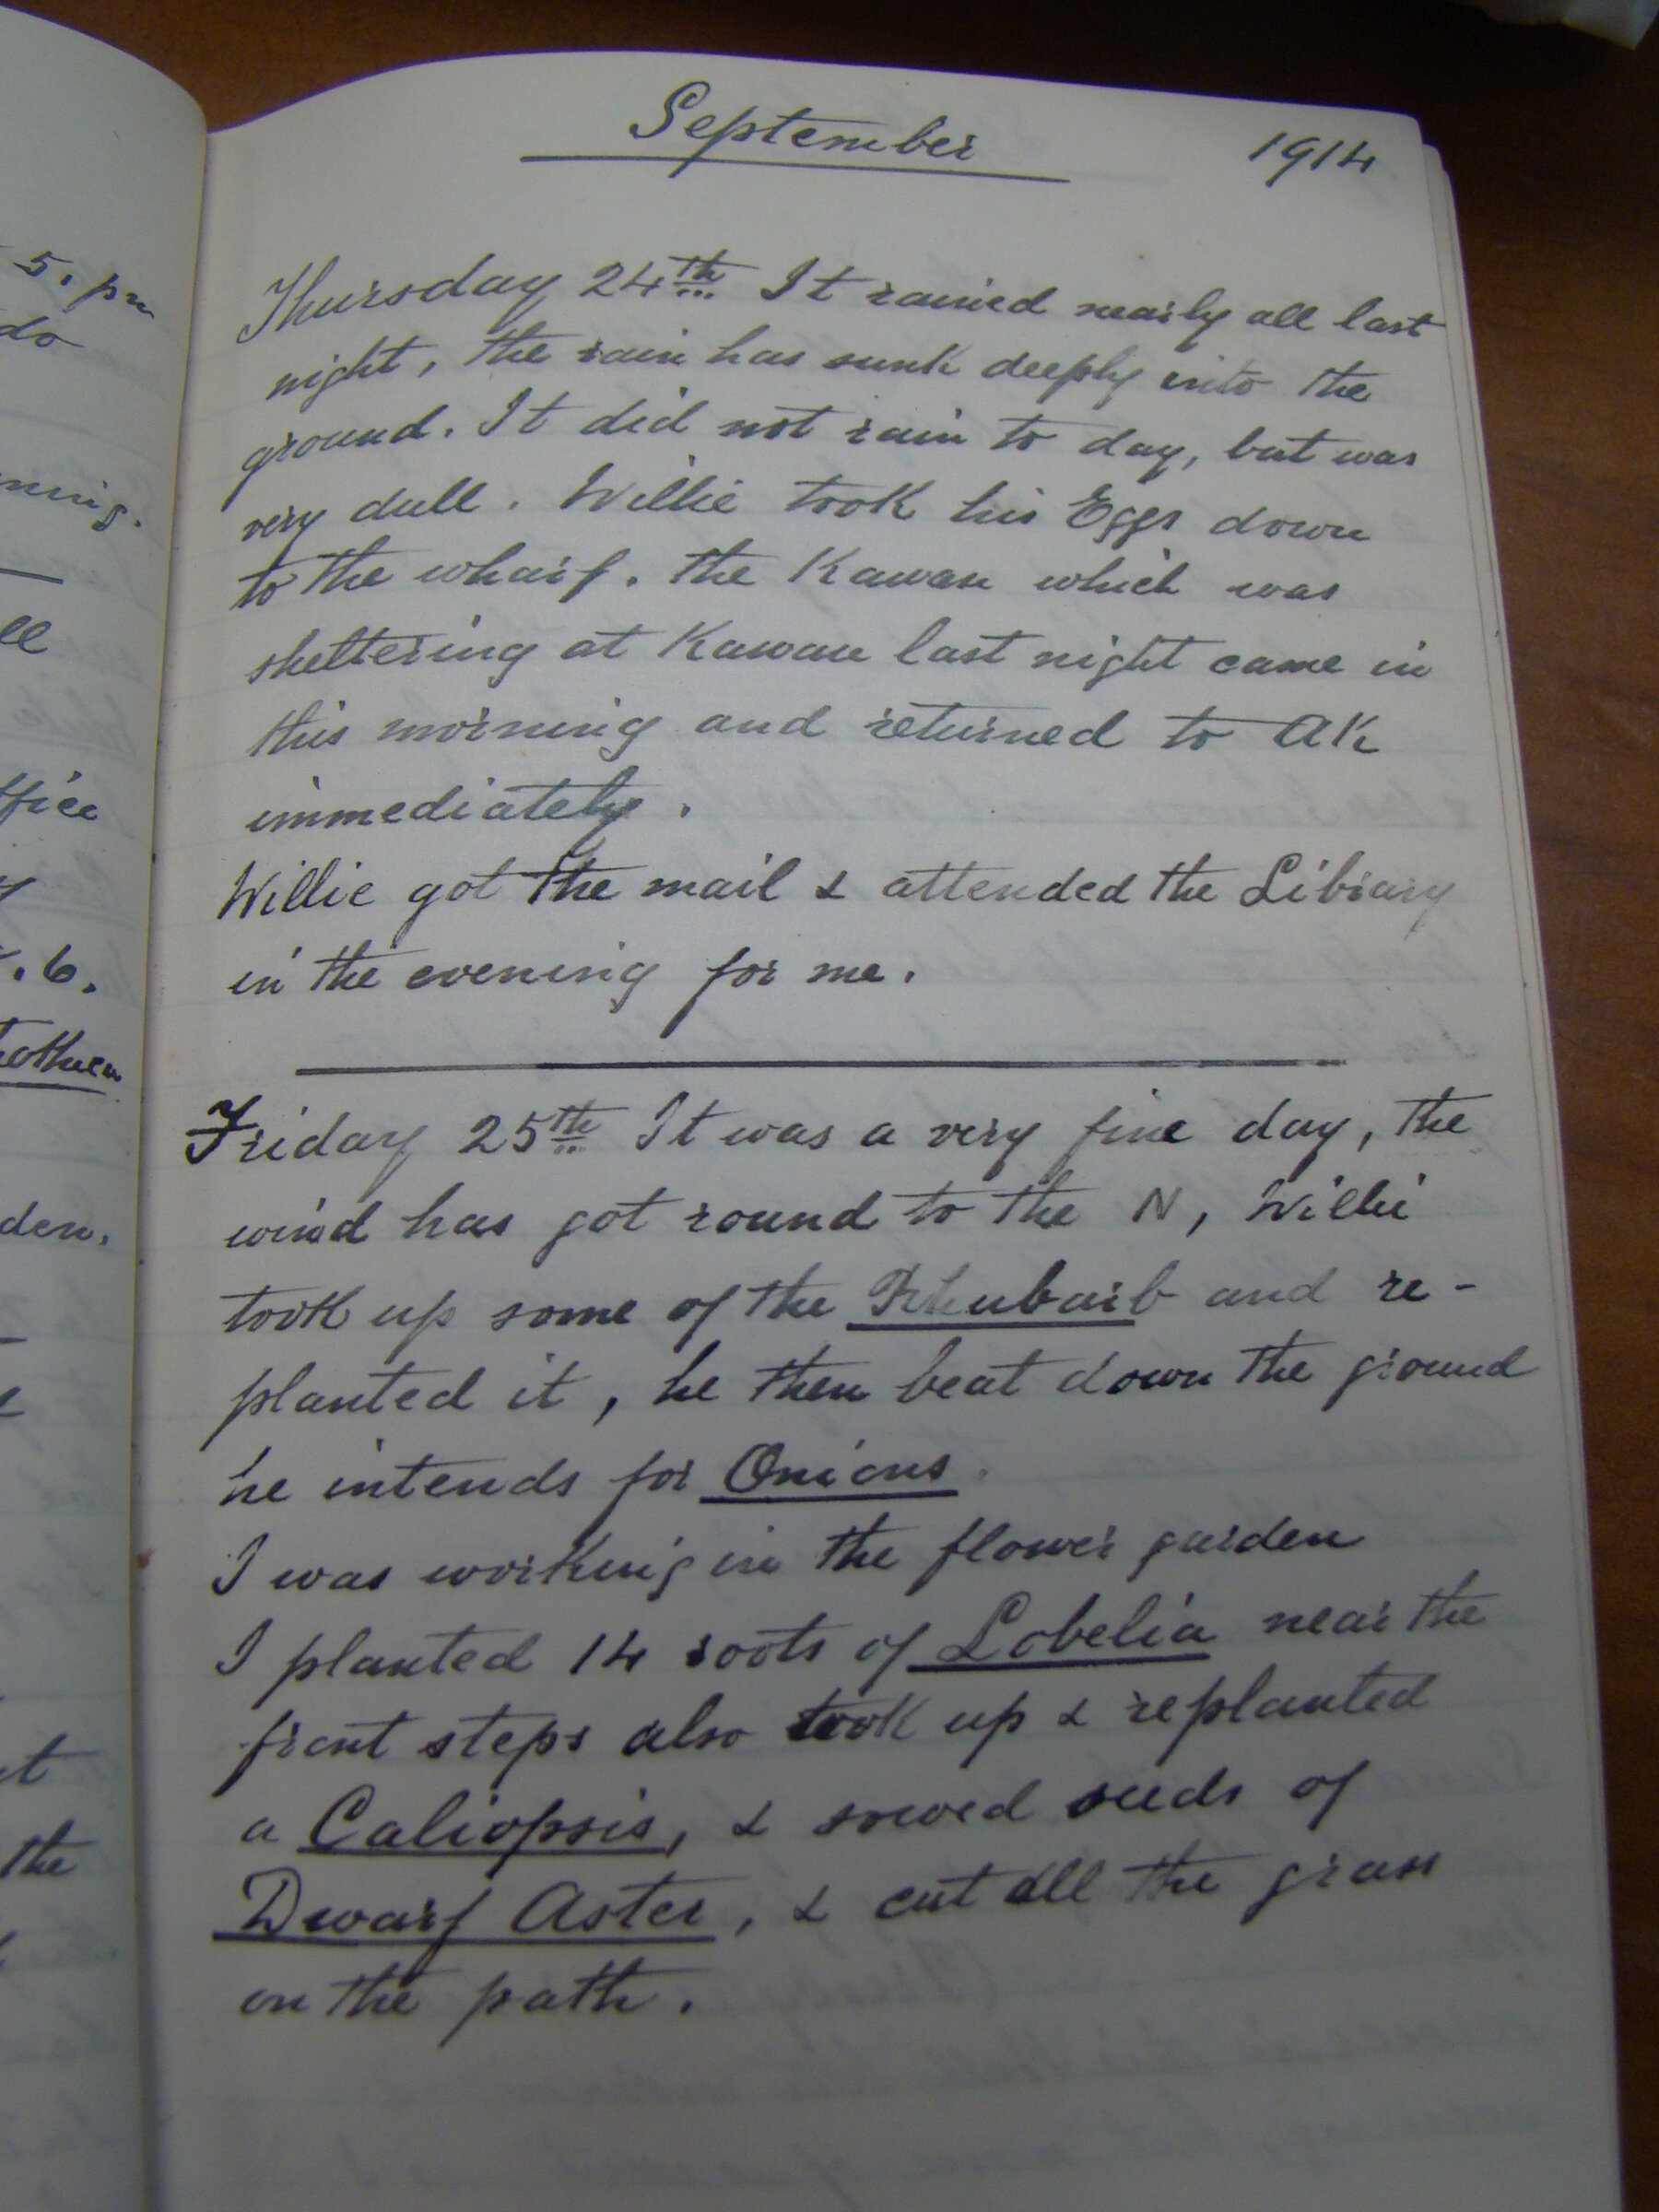 5. pm
do
ning.
ll
ffice
y
. 6.
othen
den.
t
the
September 1914
Thursday 24th It rained nearly all last
night, the rain has sunk deeply into the
ground. It did not rain to day, but was
very dull. Willie took his Eggs down
to the wharf. The Kawau which was
sheltering at Kawau last night came in
this morning and returned to AK
immediately.
Willie got the mail & attended the Library
in the evening for me.
Friday 25th It was a very fine day, the
wind has got round to the N, Willie
took up some of the Rhubarb and re-
planted it, he then beat down the ground
he intends for Onions.
I was working in the flower garden
I planted 14 roots of Lobelia near the
front steps also took up & replanted
a Caliopsis, & sowed seeds of
Dwarf Aster, & cut all the grass
on the path.